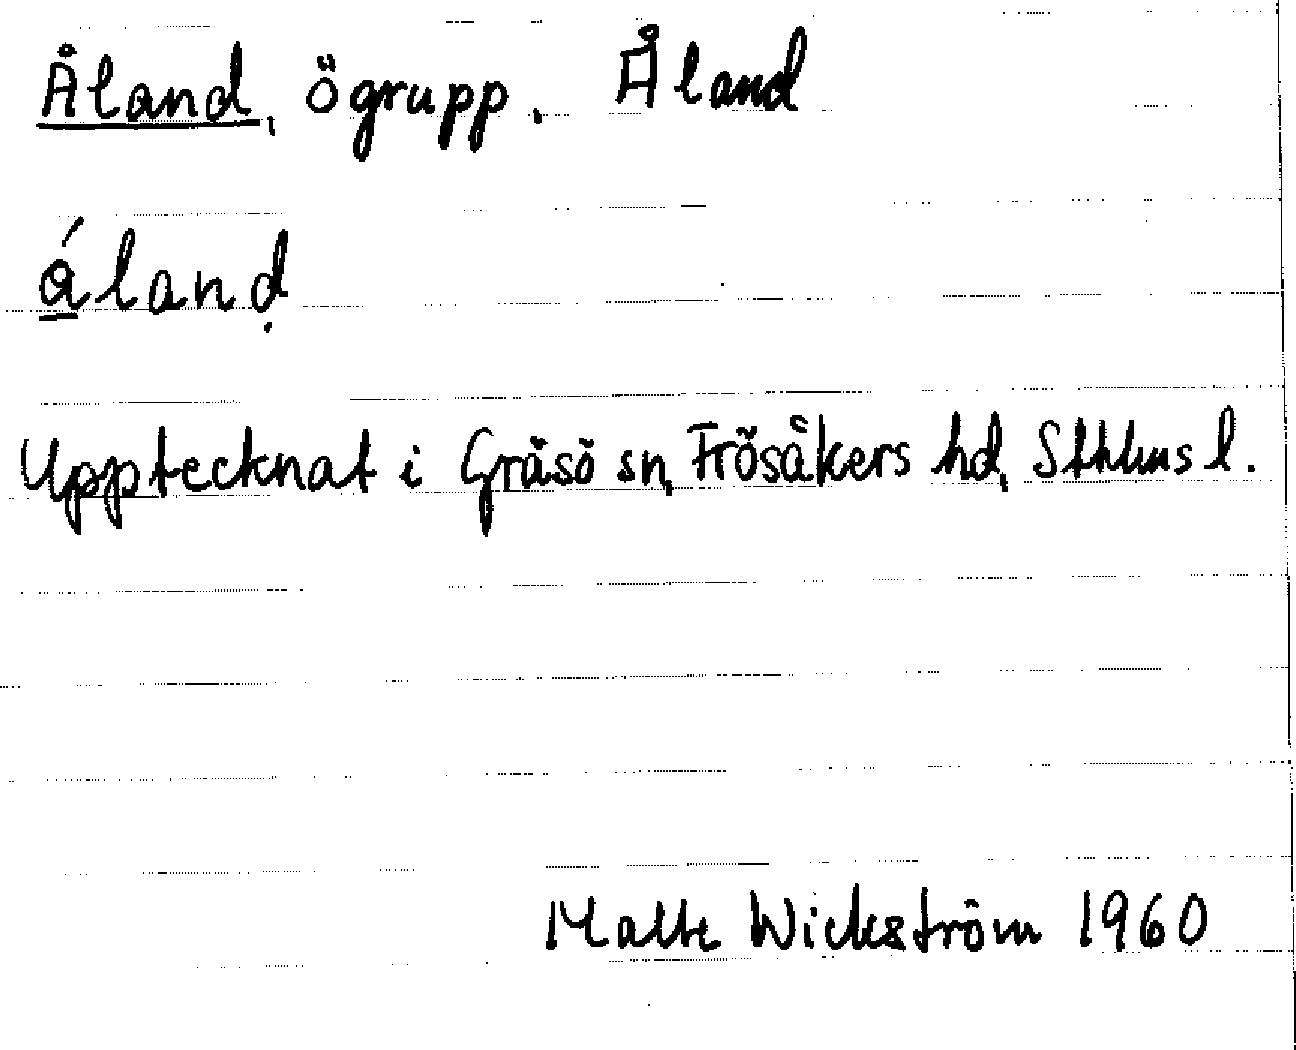 Åland, ögrupp. Åland
á̱lanḍ
Upptecknat i Gräsö sn, Frösåkers hd, Sthlms l.
Malte Wickström 1960